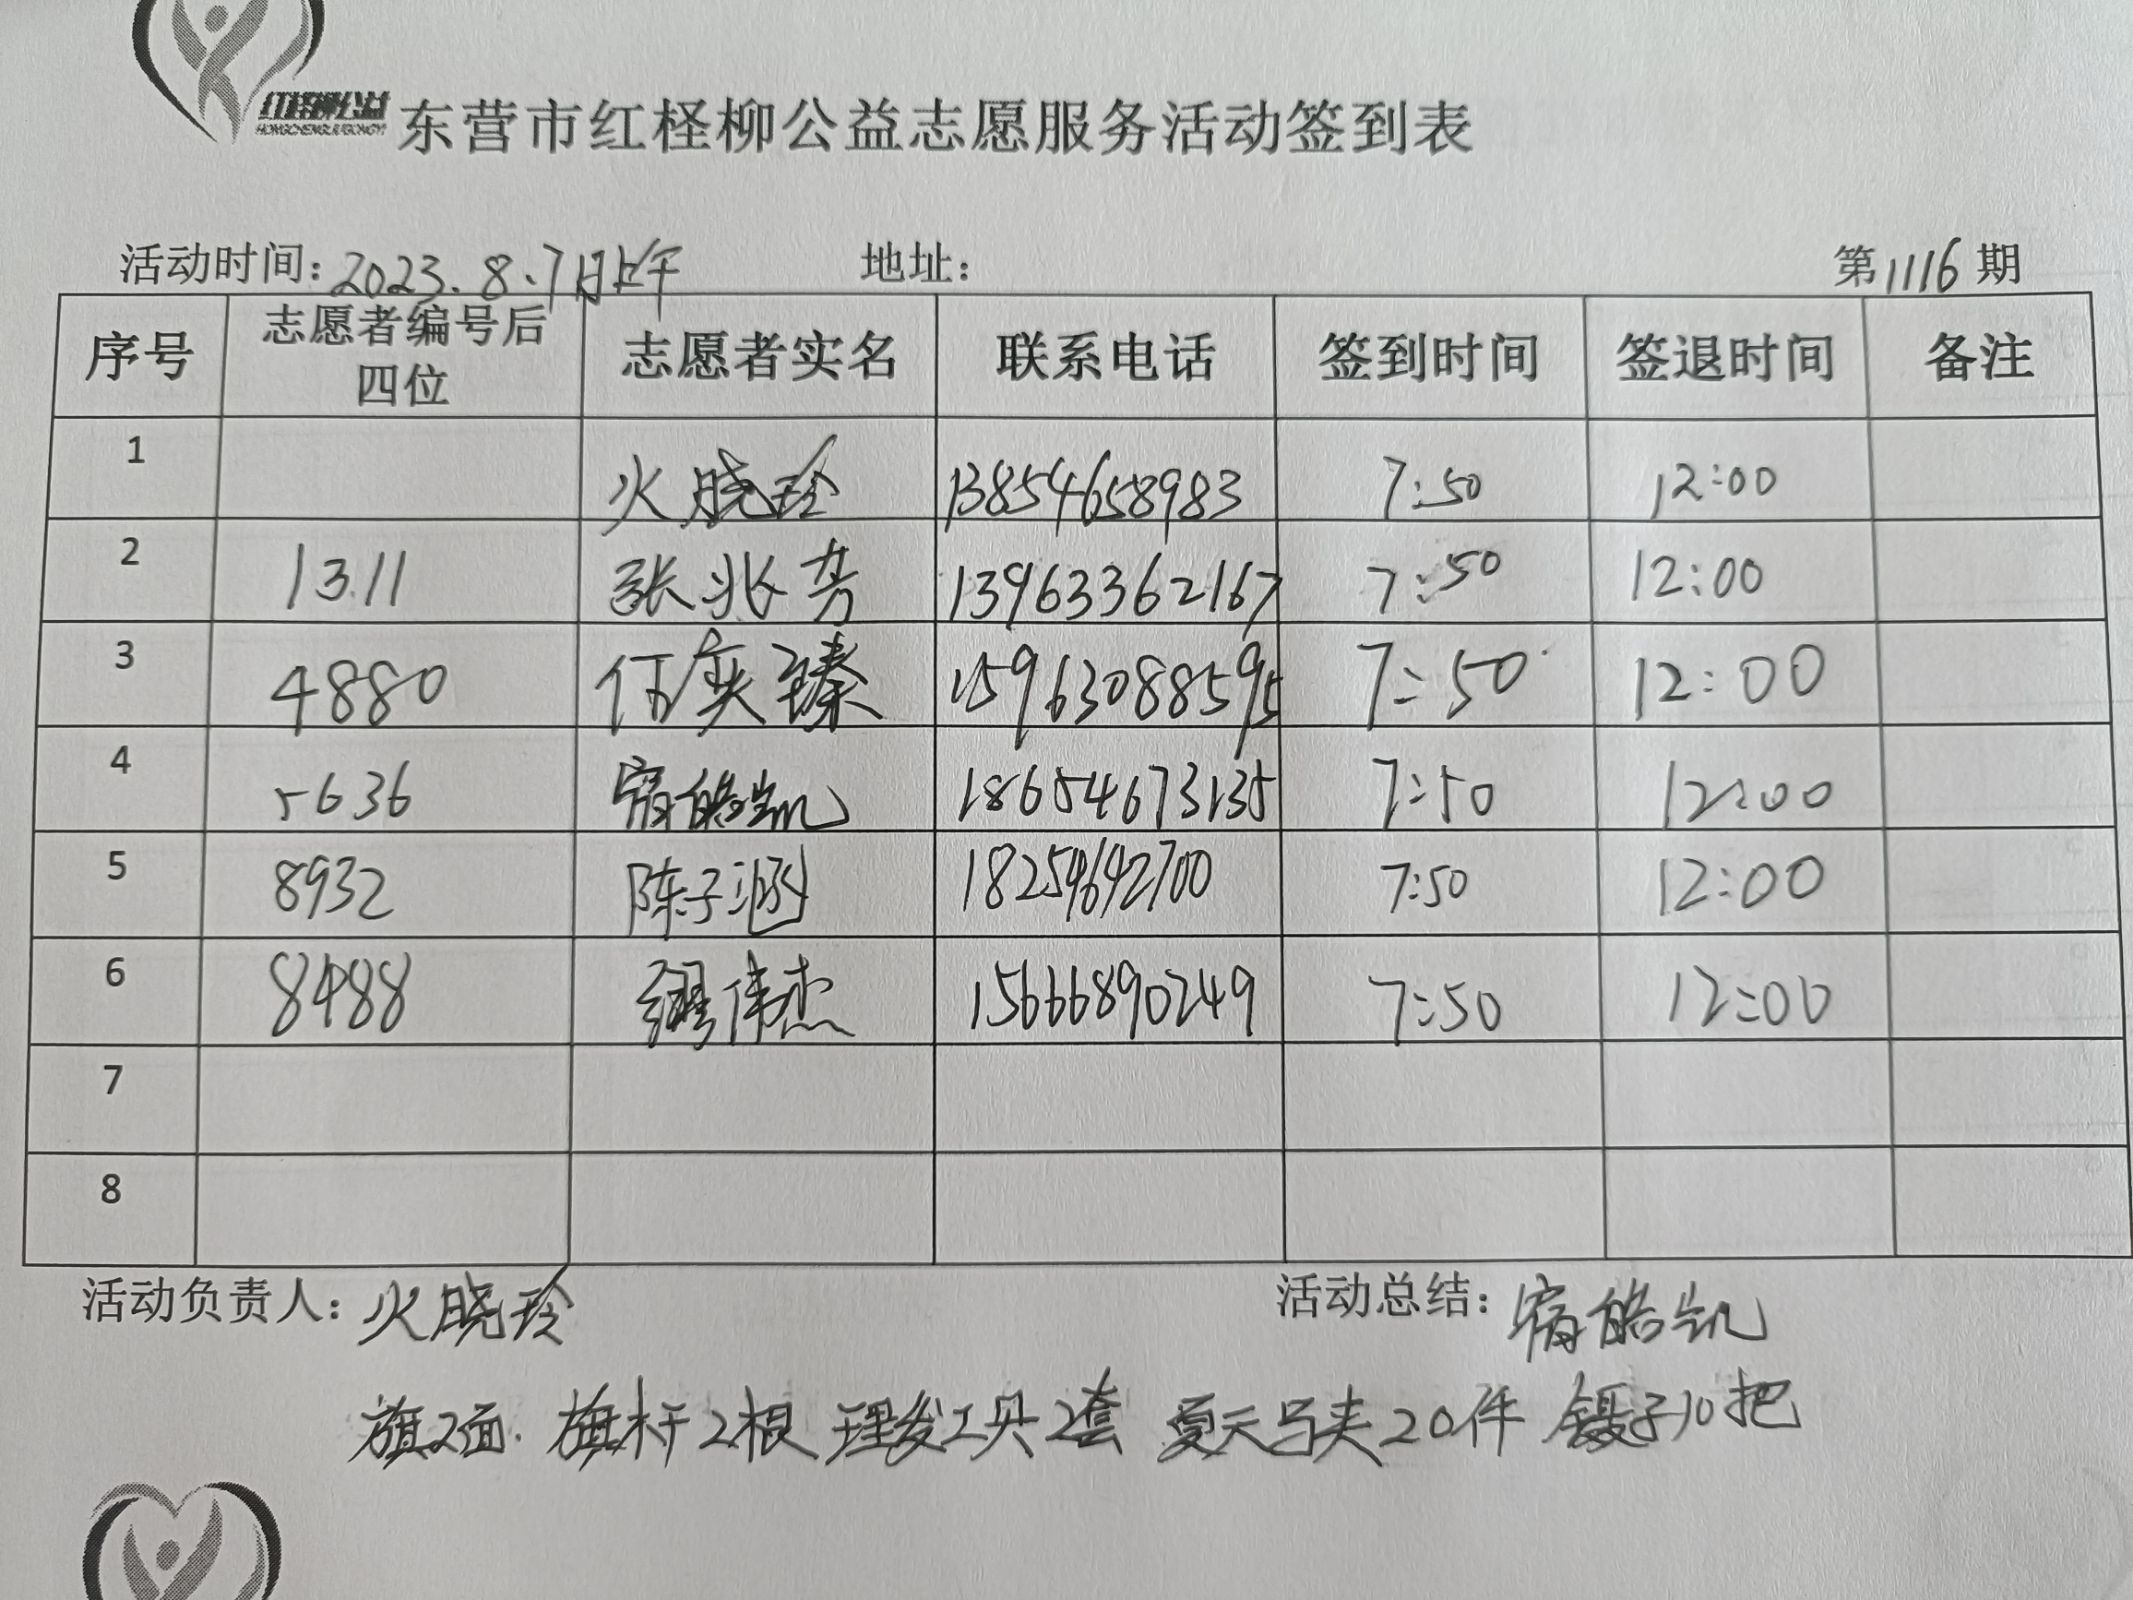 红柽柳公益
HONGCHENGLIUGONGYI
东营市红柽柳公益志愿服务活动签到表
活动时间：2023.8.7日上午 地址： 第1116期
序号 志愿者编号后四位 志愿者实名 联系电话 签到时间 签退时间 备注
1 火晓玲 13854658983 7:50 12:00
2 1311 张兆芳 13963362167 7:50 12:00
3 4880 任奕臻 15963088595 7:50 12:00
4 5636 宿皓凯 18654673135 7:50 12:00
5 8932 陈子涵 18254642700 7:50 12:00
6 8488 缪伟杰 15666890249 7:50 12:00
7
8
活动负责人：火晓玲 活动总结：宿皓凯
旗2面. 旗杆2根 理发工具2套 夏天马夹20件 镊子10把